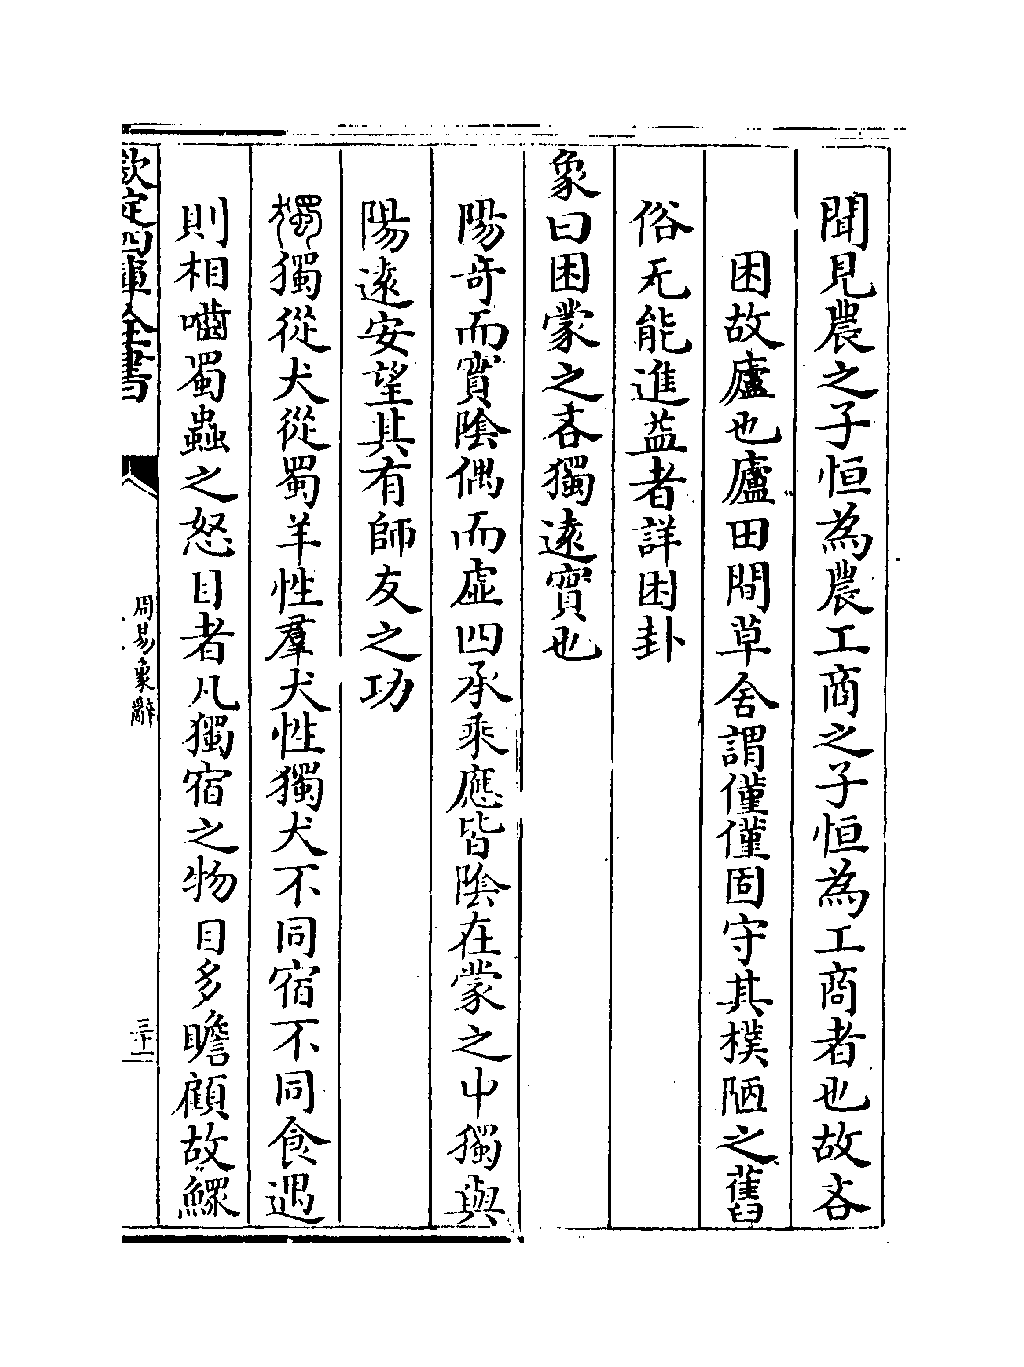 聞見農之子恒為農工商之子恒為工商者也故吝
困故廬也廬田間草舍謂僅僅固守其樸陋之舊
俗无能進益者詳困卦
象曰困蒙之吝獨遠實也
陽奇而實陰偶而虛四承乘應皆陰在蒙之中獨與
陽遠安望其有師友之功
獨從犬從蜀羊性羣犬性獨犬不同宿不同食遇
則相嚙蜀蟲之怒目者凡獨宿之物目多瞻顧故鰥
欽定四庫全書
周易象辭
三十二